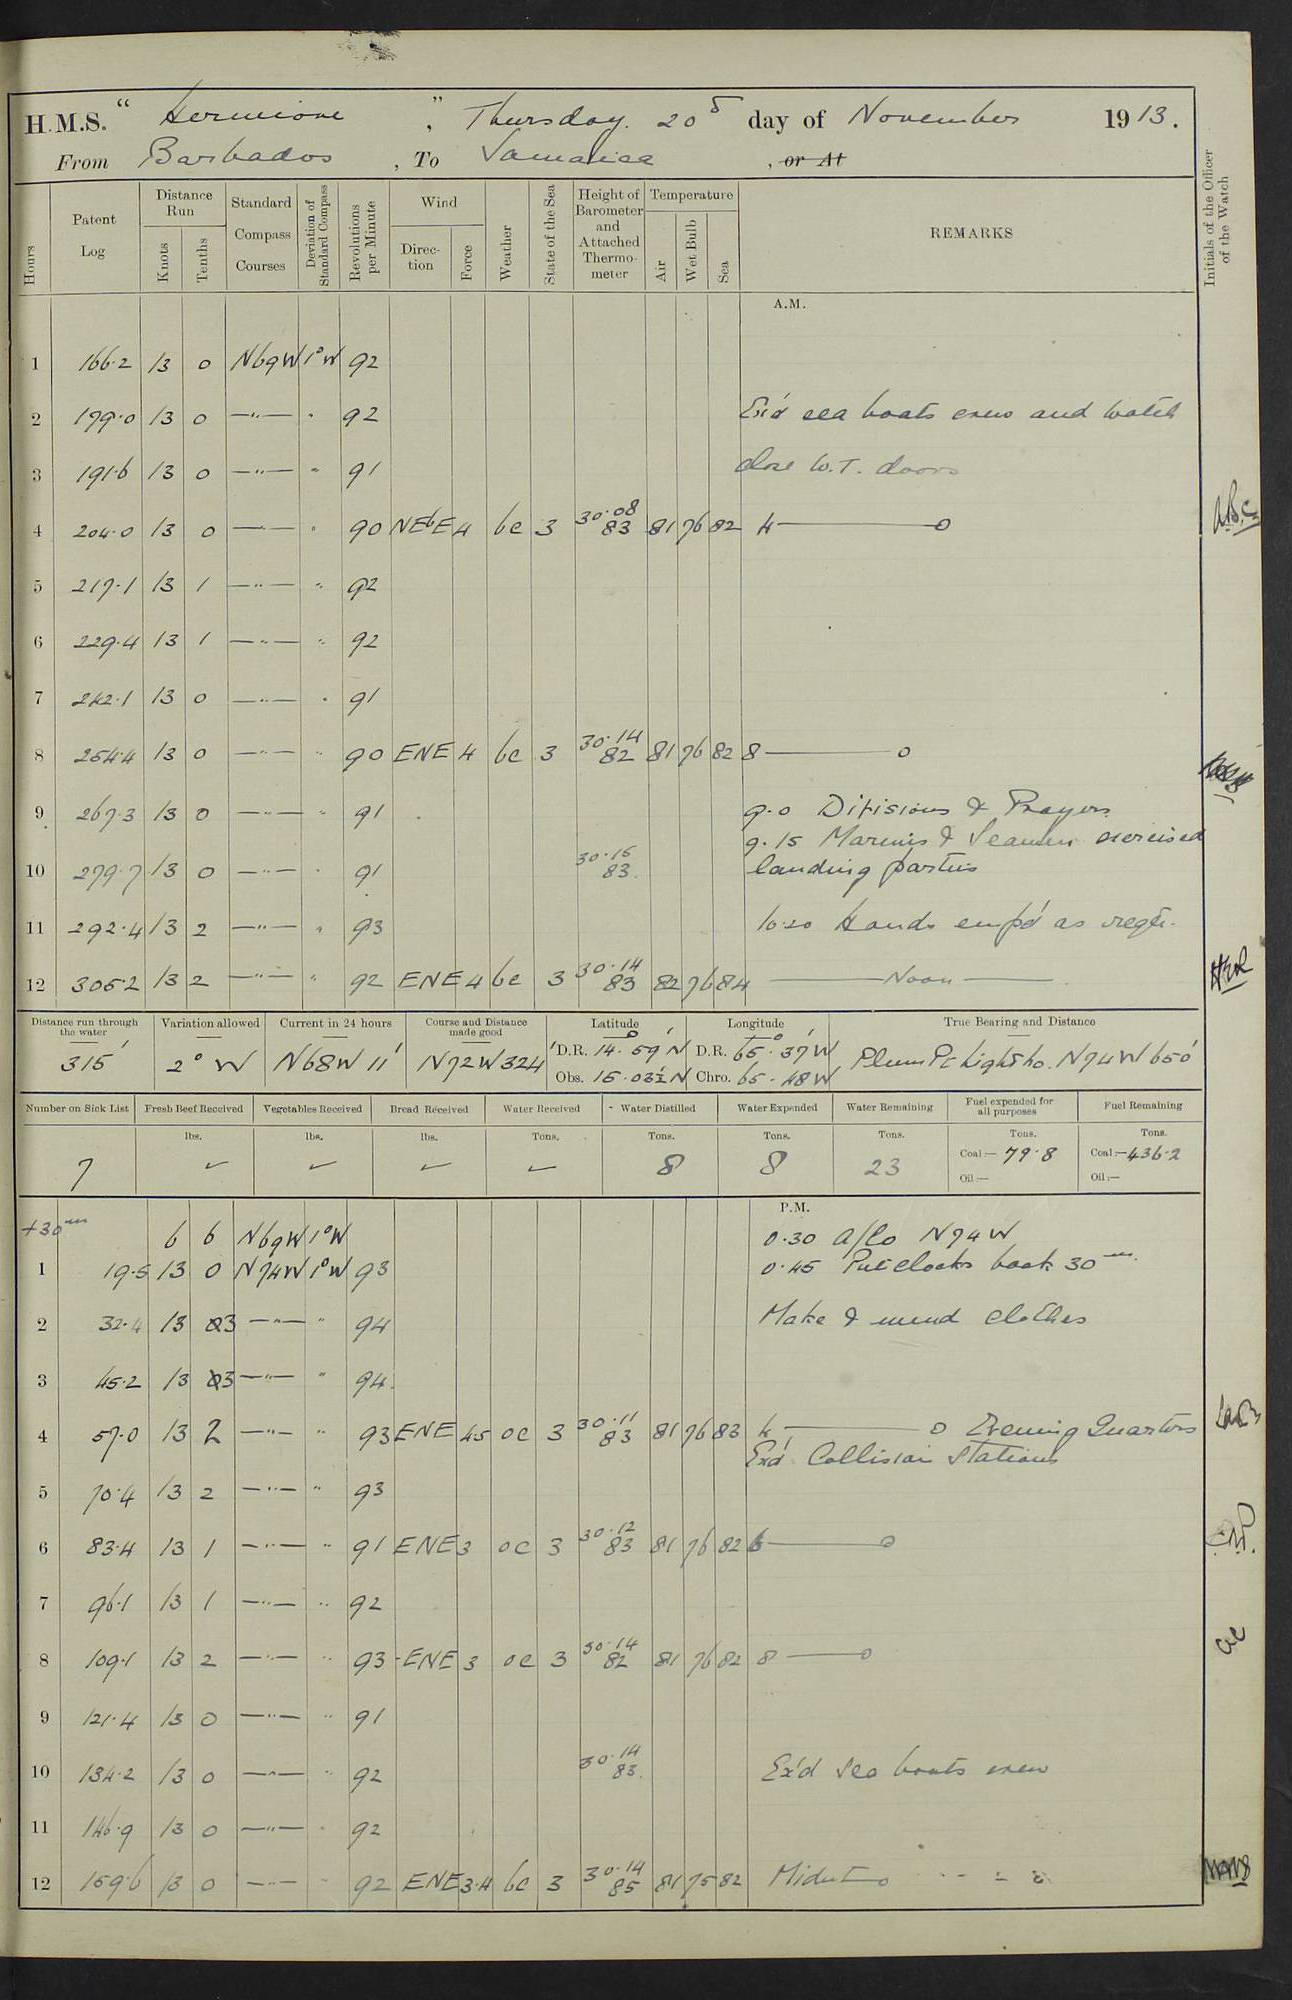 H.M.S. "Hermione", Thursday. 20th day of November 1913.
From Barbados, To Jamaica, or At
Hours Patent Log Distance Run Knots Tenths Standard Compass Courses Deviation of Standard Compass Revolutions per Minute Wind Direction Force Weather State of the Sea Height of Barometer and Attached Thermometer Temperature Air Wet Bulb Sea REMARKS Initials of the Officer of the Watch
A.M.
1 166.2 13 0 N69W 1°W 92
2 179.0 13 0 —"— " 92 Ex'd sea boats crew and watch
3 191.6 13 0 —"— " 91 close W.T. doors
4 204.0 13 0 —"— " 90 NEbE 4 bc 3 30.08 83 81 76 82 4 ——— 0
5 217.1 13 1 —"— " 92
6 229.4 13 1 —"— " 92
7 242.1 13 0 —"— " 91
8 254.4 13 0 —"— " 90 ENE 4 bc 3 30.14 82 81 76 82 8 ——— 0
9 267.3 13 0 —"— " 91 9.0 Divisions & Prayers
9.15 Marines & Seamen exercised
10 279.7 13 0 —"— " 91 30.15 83 landing parties
11 292.4 13 2 —"— " 93 10.20 Hands emp'd as reqte.
12 305.2 13 2 —"— " 92 ENE 4 bc 3 30.14 83 82 76 84 ——— Noon ———
Distance run through the water Variation allowed Current in 24 hours Course and Distance made good Latitude Longitude True Bearing and Distance
315' 2° W N68W 11' N72W 324' D.R. 14° 59' N D.R. 65° 37' W Plum Pt Lightho. N74W 650'
Obs. 15.03½ N Chro. 65.48 W
Number on Sick List Fresh Beef Received Vegetables Received Bread Received Water Received Water Distilled Water Expended Water Remaining Fuel expended for all purposes Fuel Remaining
lbs. lbs. lbs. Tons. Tons. Tons. Tons. Tons. Tons.
7 ✓ ✓ ✓ ✓ 8 8 23 Coal:— 79.8 Coal:— 436.2
Oil:— Oil:—
P.M.
+30m 6 6 N69W 1°W 0.30 a/co N74W
1 19.5 13 0 N74W 1°W 93 0.45 Put clocks back 30m.
2 32.4 13 3 —"— " 94 Make & mend clothes
3 45.2 13 3 —"— " 94
4 57.0 13 2 —"— " 93 ENE 45 oc 3 30.11 83 81 76 83 4 ——— 0 Evening Quarters
Ex'd Collision Stations
5 70.4 13 2 —"— " 93
6 83.4 13 1 —"— " 91 ENE 3 oc 3 30.12 83 81 76 82 6 ——— 0
7 96.1 13 1 —"— " 92
8 109.1 13 2 —"— " 93 ENE 3 oc 3 30.14 82 81 76 82 8 ——— 0
9 121.4 13 0 —"— " 91
10 134.2 13 0 —"— " 92 30.14 83 Ex'd sea boats crew
11 146.9 13 0 —"— " 92
12 159.6 13 0 —"— " 92 ENE 3.4 bc 3 30.14 85 81 75 82 Midnt